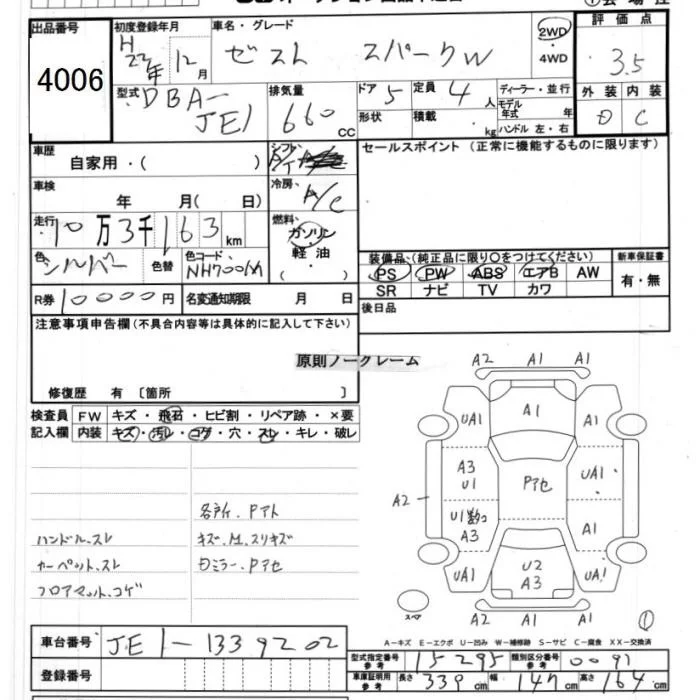 出品番号 初度登録年月 車名・グレード 評価点
4006 H 22年 12月 ゼスト スパークW 2WD ・ 4WD 3.5
外装 内装
D C
型式 DBA-JE1 排気量 660 CC ドア 5 定員 4人 ディーラー・並行
形状 積載 ・kg モデル年式 年 ハンドル 左・右
車歴 自家用・( ) シフト A/T セールスポイント (正常に機能するものに限ります)
車検 年 月( 日) 冷房 A/C
走行 10万3千163km 燃料 ガソリン 軽油 ( ・ )
色 シルバー 色替 色コード NH700M
装備品、(純正品に限り○をつけてください) 新車保証書
PS PW ABS エアB AW 有・無
SR ナビ TV カワ
R券 10000円 名変通知期限 月 日 後日品
注意事項申告欄 (不具合内容等は具体的に記入して下さい)
原則ノークレーム
修復歴 有 〔箇所 〕
検査員 FW キズ・飛石・ヒビ割・リペア跡・×要
記入欄 内装 キズ・汚レ・コゲ・穴・スレ・キレ・破レ
各所、Pアト
ハンドル、スレ キズ、M、スリキズ
カーペット、スレ Dミラー、Pアセ
フロアマット、コゲ
A2 A1 A1
UA1 A1 A1
A3 U1 Pアセ UA1
A2
U1 A3 A1
UA1 U2 A3 UA1
スペア A2 A1 A1
A-キズ E-エクボ U-凹み W-補修跡 S-サビ C-腐食 XX-交換済
車台番号 JE1-1339202
型式指定番号 参考 15295 類別区分番号 参考 0091
登録番号
車庫証明用 参考 長さ 339cm 幅 147cm 高さ 164cm